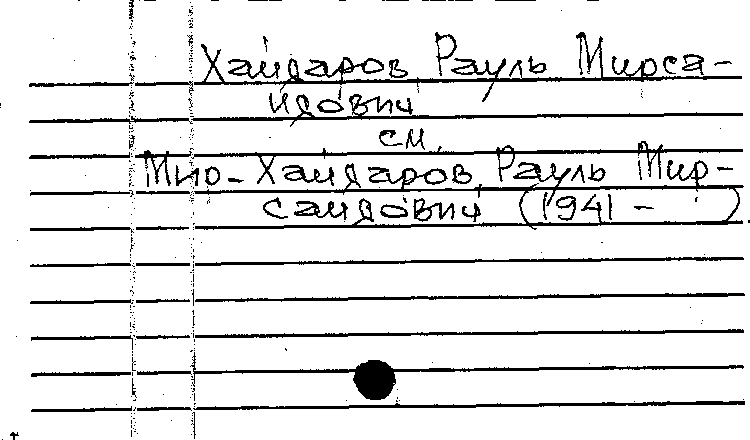 Хайдаров, Рауль Мирса-
идович
см.
Мир-Хайдаров, Рауль Мир-
саидович (1941 - )